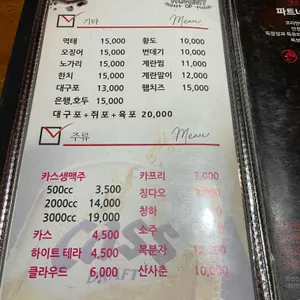 기타 Menu
먹태 15,000 황도 10,000
오징어 15,000 번데기 10,000
노가리 15,000 계란찜 11,000
한치 15,000 계란말이 12,000
대구포 13,000 햄치즈 15,000
은행,호두 15,000
대구포+쥐포+육포 20,000
주류 Menu
카스생맥주 카프리 7,000
500cc 3,500 칭다오
2000cc 14,000 청하
3000cc 19,000 소주
카스 4,500 복분자
하이트 테라 4,500 산사춘 10,000
클라우드 6,000
파트너